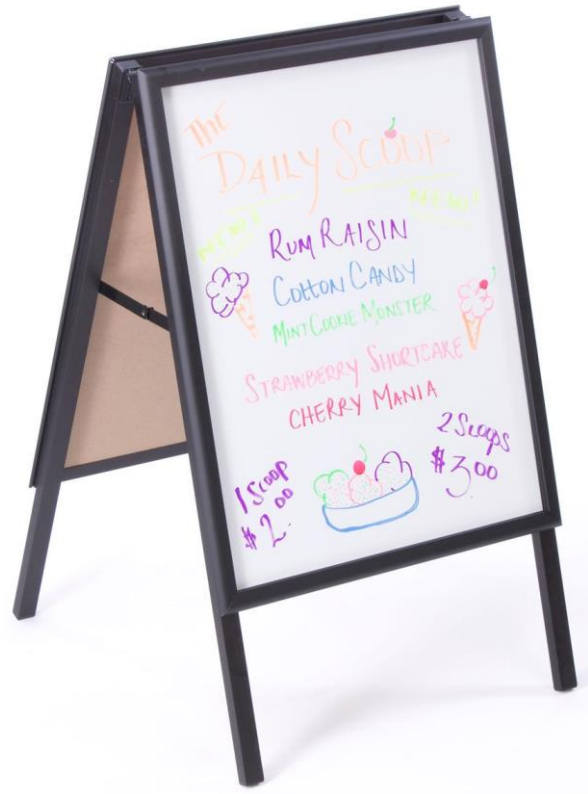 The
DAILY SCOOP
RUM RAISIN
COTTON CANDY
MINT COOKIE MONSTER
STRAWBERRY SHORTCAKE
CHERRY MANIA
1 SCOOP
$2.00
2 SCOOPS
$3.00